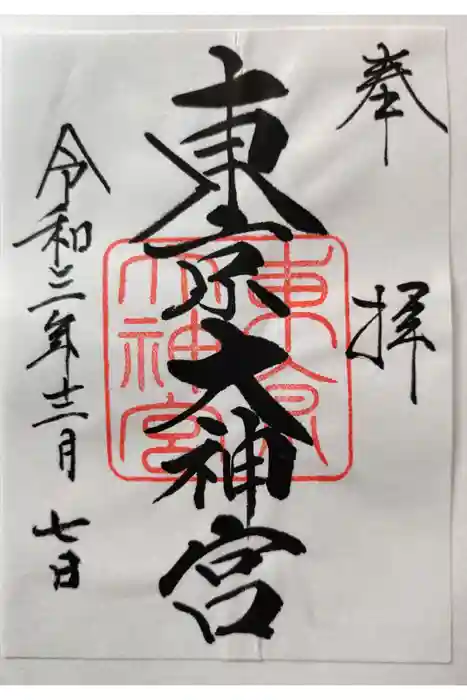 奉拝
東京大神宮
東京大神宮
令和三年十二月七日